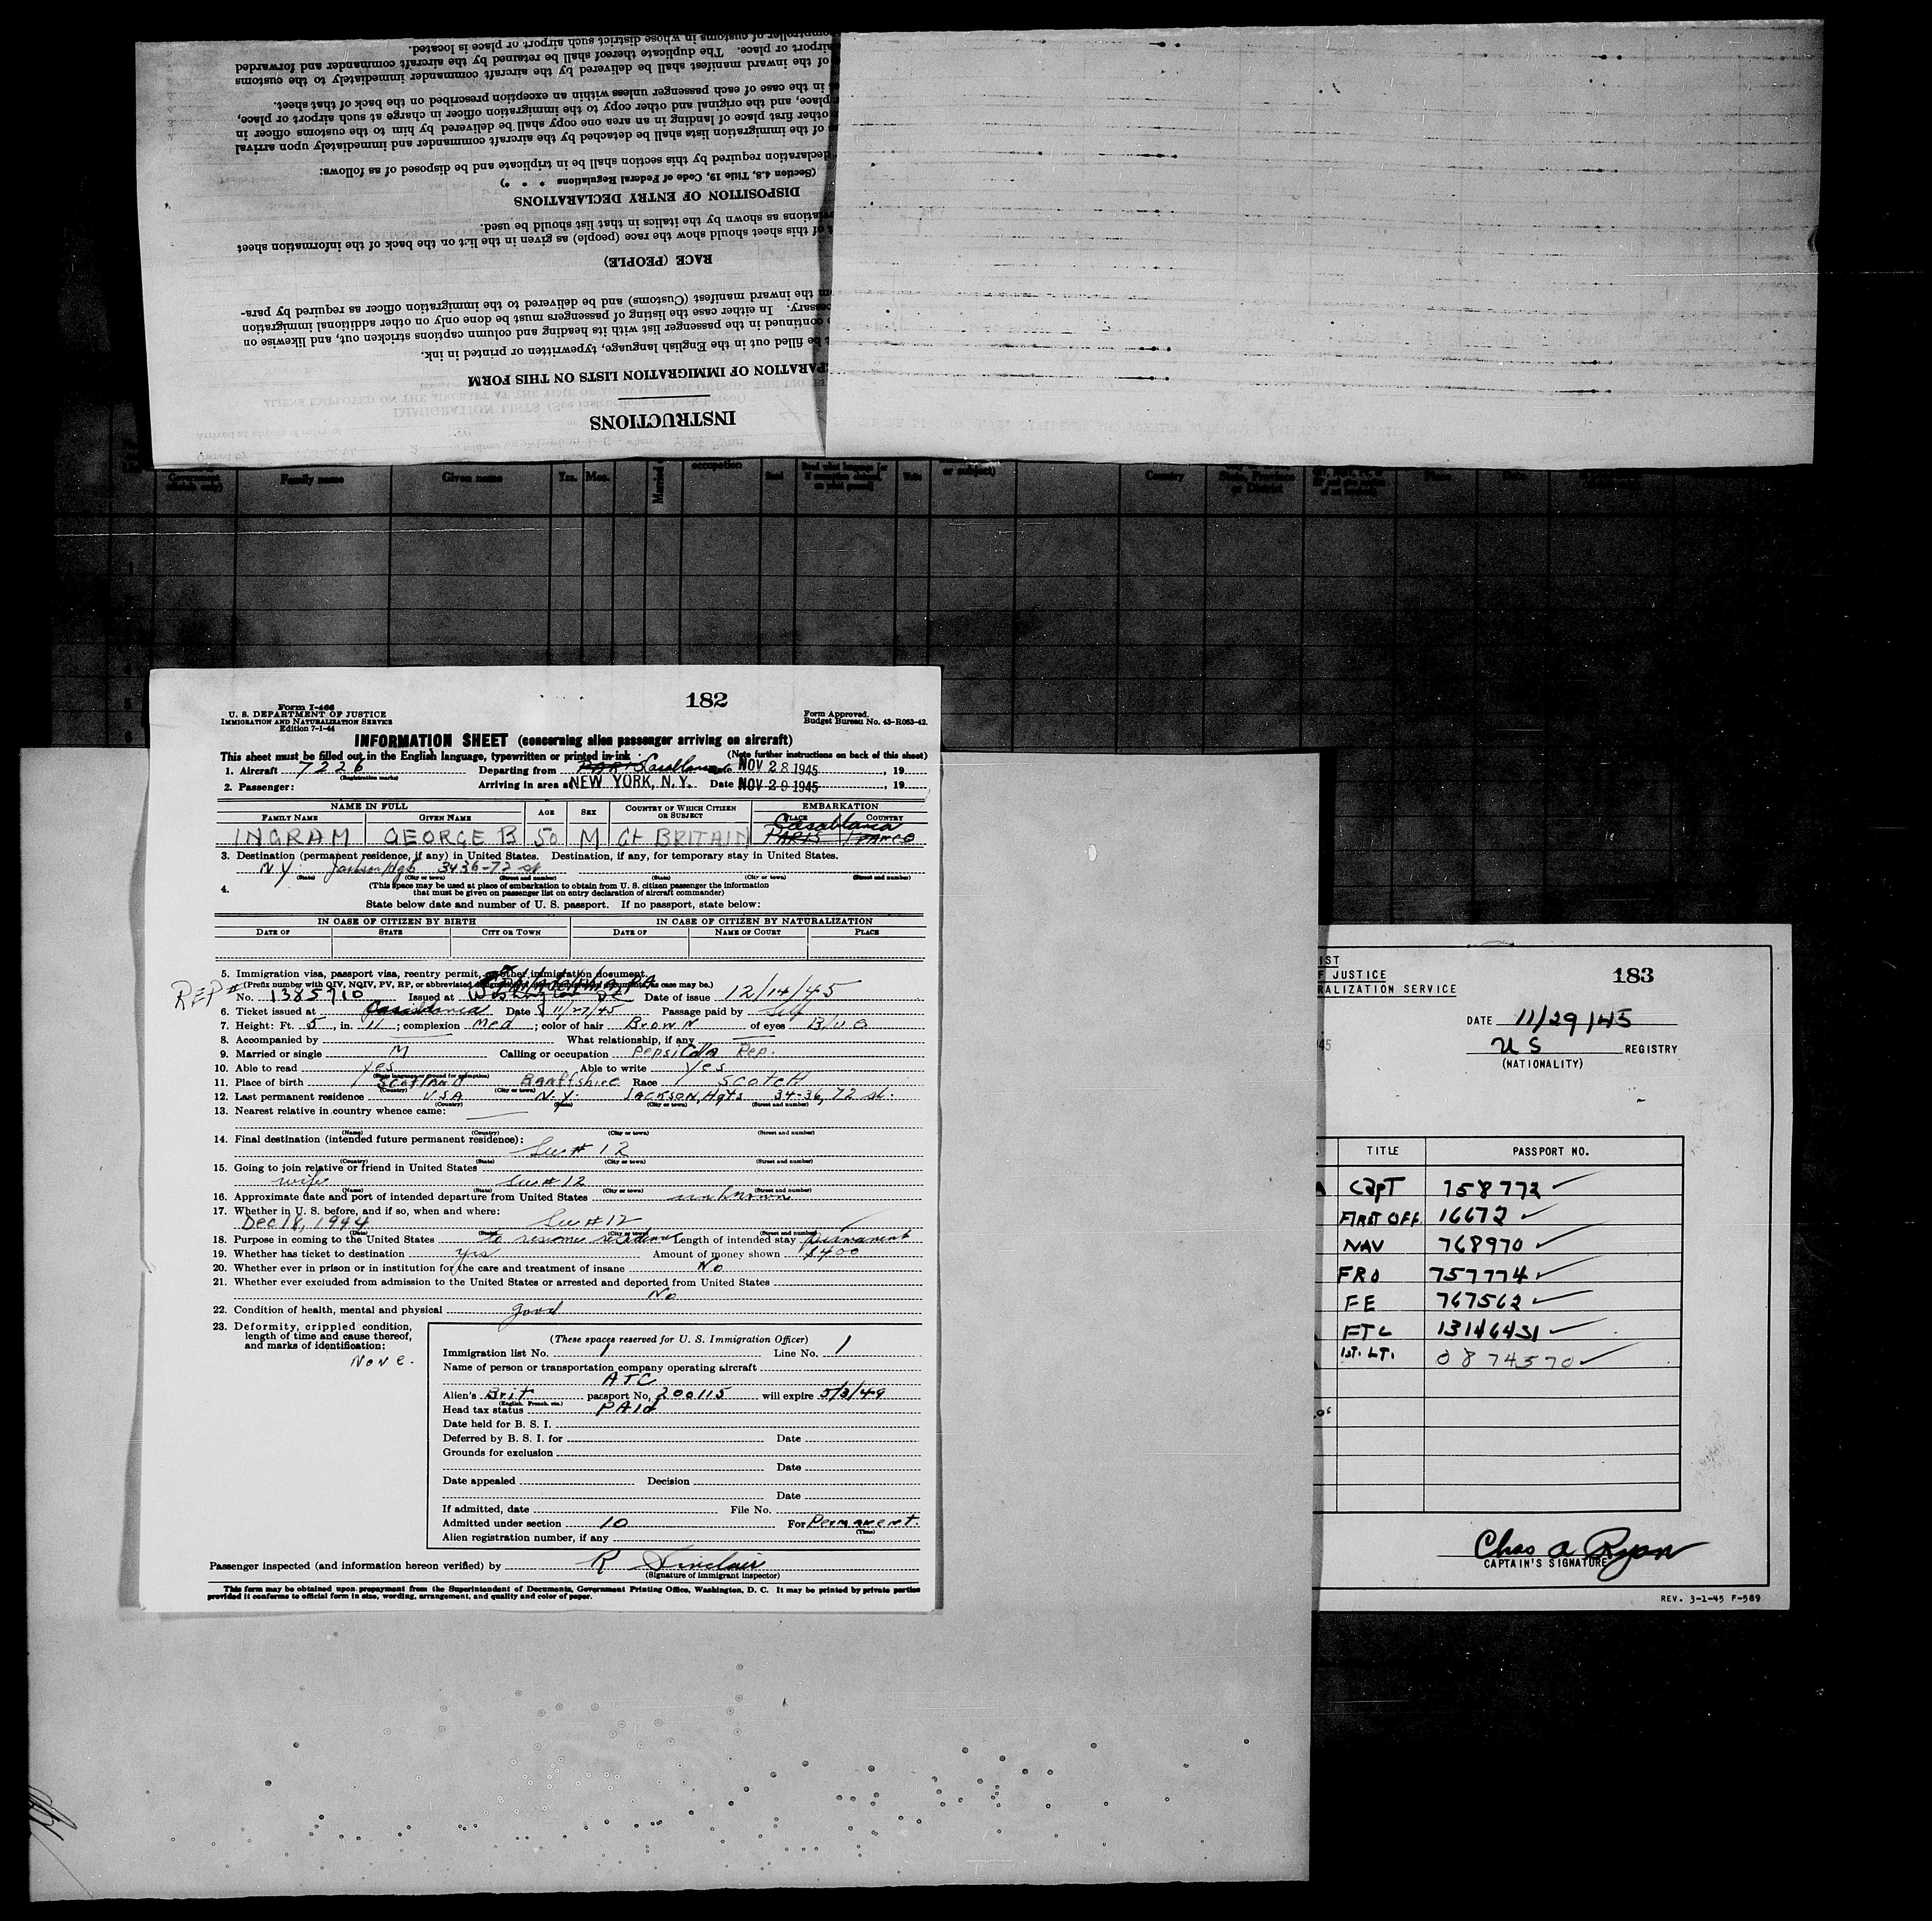 INSTRUCTIONS
PARATION OF IMMIGRATION LISTS ON THIS FORM
be filled out in the English language, typewritten or printed in ink.
continued in the passenger list with its heading and column captions stricken out, and likewise on
ssary. In either case the listing of passengers must be done only on other additional immigration
om the inward manifest (Customs) and be delivered to the immigration officer as required by para-
RACE (PEOPLE)
of this sheet should show the race (people) as given in the list on the back of the information sheet
viations as shown by the italics in that list should be used.
DISPOSITION OF ENTRY DECLARATIONS
(Section 4.8, Title 19, Code of Federal Regulations * * *)
declaration required by this section shall be in triplicate and be disposed of as follows:
of the immigration lists shall be detached by the aircraft commander and immediately upon arrival
other first place of landing in an area one copy shall be delivered by him to the customs officer in
place, and the original and other copy to the immigration officer in charge at such airport or place,
in the case of each passenger unless within an exception prescribed on the back of that sheet.
of the inward manifest shall be delivered by the aircraft commander immediately to the customs
airport or place. The duplicate thereof shall be retained by the aircraft commander and forwarded
comptroller of customs in whose district such airport or place is located.
Family name Given name Yrs. Mos. Married occupation Read Write or subject) Country State, Province or District Place
182
Form I-466
U. S. DEPARTMENT OF JUSTICE
IMMIGRATION AND NATURALIZATION SERVICE
Edition 7-1-44
Form Approved.
Budget Bureau No. 43-R063-42.
INFORMATION SHEET (concerning alien passenger arriving on aircraft)
This sheet must be filled out in the English language, typewritten or printed in ink (Note further instructions on back of this sheet)
1. Aircraft 7226 Departing from PARIS Casablanca Date NOV 28 1945, 19
(Registration marks)
2. Passenger: Arriving in area at NEW YORK, N.Y. Date NOV 29 1945, 19
NAME IN FULL AGE SEX COUNTRY OF WHICH CITIZEN OR SUBJECT EMBARKATION
FAMILY NAME GIVEN NAME PLACE COUNTRY
Casablanca
INGRAM GEORGE B 50 M Gt BRITAIN PARIS FRANCE
3. Destination (permanent residence, if any) in United States. Destination, if any, for temporary stay in United States.
N.Y. Jackson Hgts 3436-72 st
(State) (City or town) (Street and number) (State) (City or town) (Street and number)
4. (This space may be used at place of embarkation to obtain from U. S. citizen passenger the information
that must be given on passenger list on entry declaration of aircraft commander)
State below date and number of U. S. passport. If no passport, state below:
IN CASE OF CITIZEN BY BIRTH IN CASE OF CITIZEN BY NATURALIZATION
DATE OF STATE CITY OR TOWN DATE OF NAME OF COURT PLACE
5. Immigration visa, passport visa, reentry permit, or other immigration document.
(Prefix number with QIV, NQIV, PV, RP, or abbreviated as case may be.)
REP # No. 1385710 Issued at Philadelphia PA Date of issue 12/14/45
6. Ticket issued at Casablanca Date 11/27/45 Passage paid by Self
7. Height: Ft. 5, in. 11; complexion Med; color of hair BROWN of eyes Blue
8. Accompanied by What relationship, if any
9. Married or single M Calling or occupation Pepsi Cola Rep.
10. Able to read Yes Able to write Yes
(State language or ground for exemption)
11. Place of birth Scotland Banffshire Race SCOTCH
(Country) (City or town)
12. Last permanent residence USA N.Y. JACKSON, Hgts 34-36, 72 st.
(Country) (State) (City or town) (Street and number)
13. Nearest relative in country whence came:
(Name) (Country) (City or town) (Street and number)
14. Final destination (intended future permanent residence):
See # 12
(Country) (State) (City or town) (Street and number)
15. Going to join relative or friend in United States
wife See # 12
(Name) (State) (City or town) (Street and number)
16. Approximate date and port of intended departure from United States unknown
17. Whether in U. S. before, and if so, when and where:
Dec 18, 1944 See # 12
(Date) (State) (City or town) (Street and number)
18. Purpose in coming to the United States to resume residence Length of intended stay Permanent
19. Whether has ticket to destination yes Amount of money shown $400
20. Whether ever in prison or in institution for the care and treatment of insane No
21. Whether ever excluded from admission to the United States or arrested and deported from United States
No
22. Condition of health, mental and physical good
23. Deformity, crippled condition,
length of time and cause thereof,
and marks of identification:
None.
(These spaces reserved for U. S. Immigration Officer)
Immigration list No. 1 Line No. 1
Name of person or transportation company operating aircraft
ATC
Alien's Brit passport No. 200115 will expire 5/3/49
(English, French, etc.)
Head tax status PAId
Date held for B. S. I.
Deferred by B. S. I. for Date
Grounds for exclusion
Date
Date appealed Decision
Date
If admitted, date File No.
Admitted under section 10 For Permanent.
(Time)
Alien registration number, if any
Passenger inspected (and information hereon verified) by R Sinclair
(Signature of immigrant inspector)
This form may be obtained upon prepayment from the Superintendent of Documents, Government Printing Office, Washington, D. C. It may be printed by private parties
provided it conforms to official form in size, wording, arrangement, and quality and color of paper.
183
IST
F JUSTICE
RALIZATION SERVICE
DATE 11/29/45
45
US REGISTRY
(NATIONALITY)
TITLE PASSPORT NO.
CAPT 758772
FIRST OFF 16672
NAV 768970
FRO 757774
FE 767562
FTC 13146431
1ST. LT. 0874570
Chas A Ryan
CAPTAIN'S SIGNATURE
REV. 3-1-45 F-589